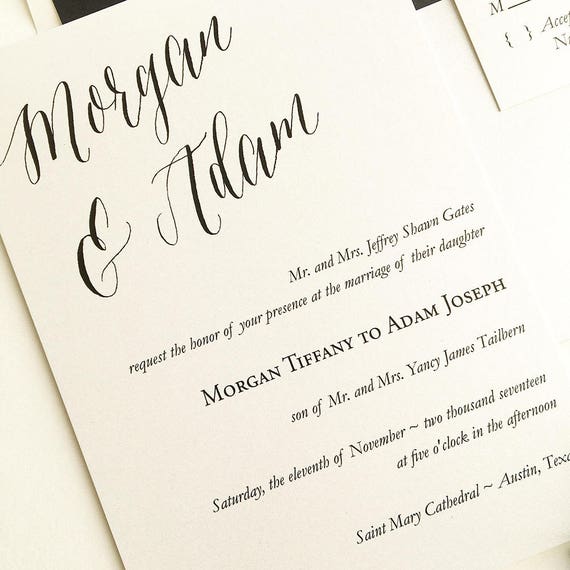 Morgan
& Adam
Mr. and Mrs. Jeffrey Shawn Gates
request the honor of your presence at the marriage of their daughter
Morgan Tiffany to Adam Joseph
son of Mr. and Mrs. Yancy James Tailbern
Saturday, the eleventh of November ~ two thousand seventeen
at five o'clock in the afternoon
Saint Mary Cathedral ~ Austin, Texa
M
{ }